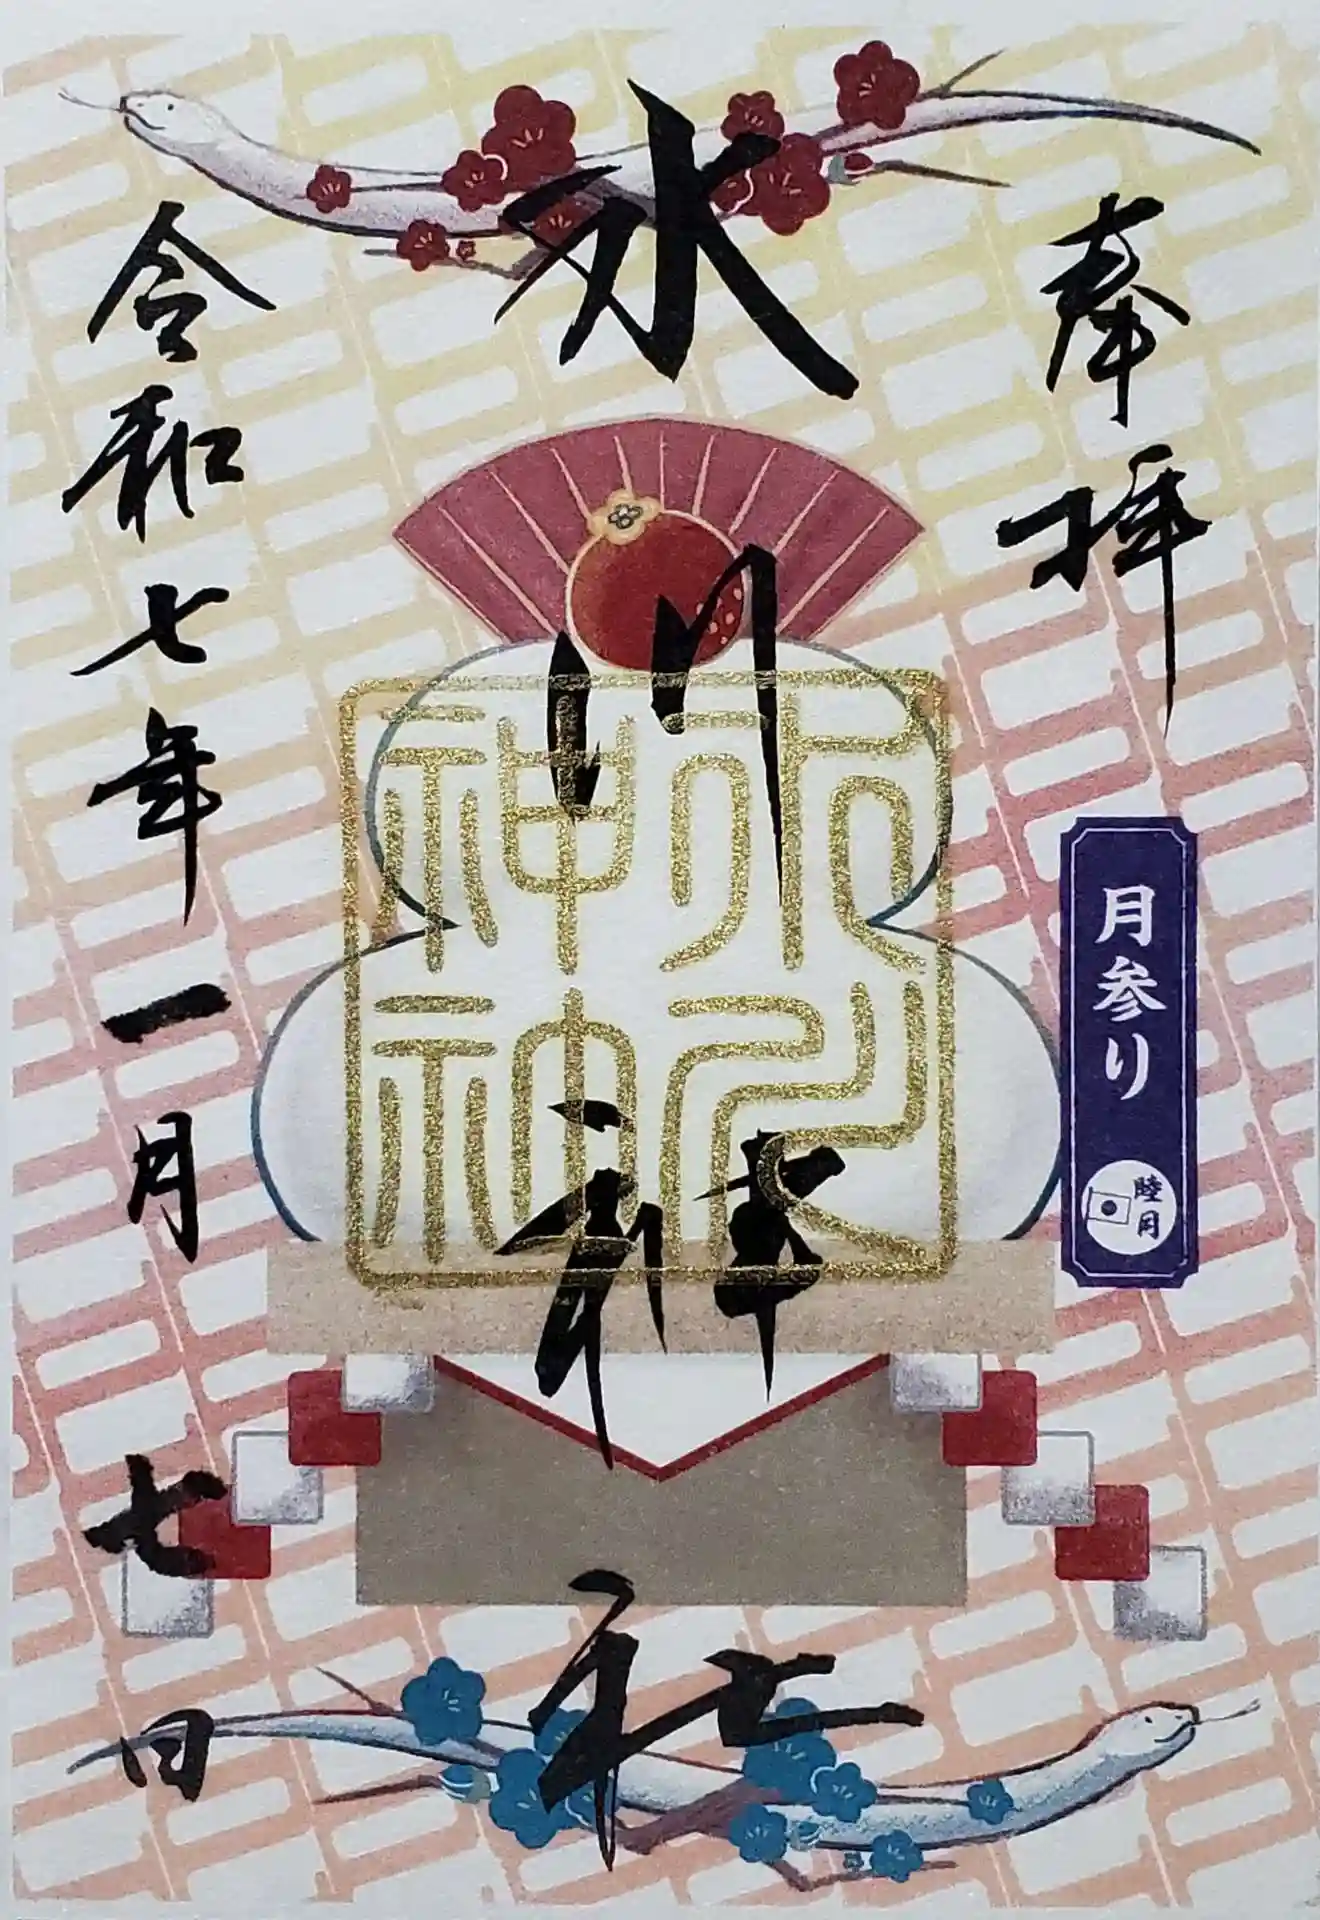 奉拝
月参り
睦月
氷川神社
令和七年一月七日